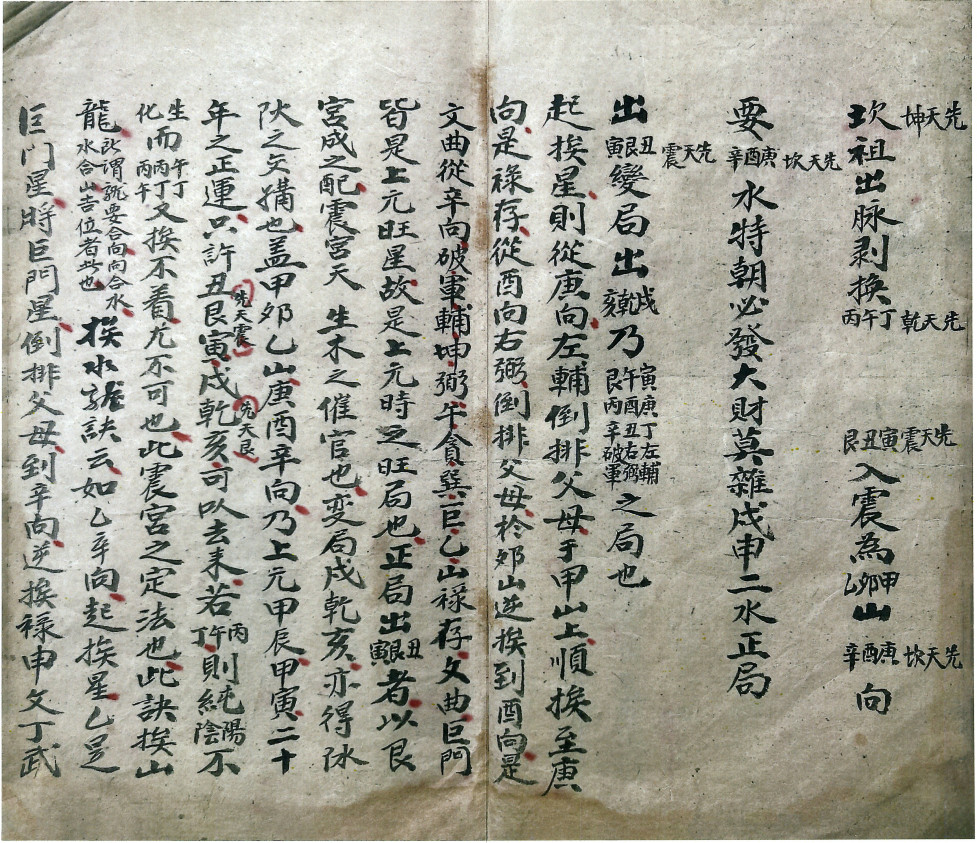 坎先天坤祖出脉剥换丙午丁先天乾艮丑寅先天震入震為甲卯乙山辛酉庚先天坎向
要辛酉庚先天坎水特朝必發大財莫雜戍申二水正局
出丑艮寅先天震變局出戍乾亥乃寅午艮庚酉丙丁丑辛左輔右弼破軍之局也
起挨星則從庚向左輔倒排父母于甲山上順挨至庚
向是祿存從酉向右弼倒排父母於卯山逆挨到酉向是
文曲從辛向破軍輔坤弼午貪巽巨乙山祿存文曲巨門
皆是上元旺星故是上元時之旺局也正局出丑艮寅者以艮
宮成之配震宮天生木之催官也变局戍乾亥亦得
之交媾也盖甲卯乙山庚酉辛向乃上元甲辰甲寅二十
年之正運只許丑艮寅先天震戍乾亥先天艮可以去来若丙午丁則純陽陰不
生化而午丁丙丙丁午又挨不着尤不可也此震宮之定法也此訣挨山
龍所謂龍要合向向合水水合山吉位者此也挨水訣云如乙辛向起挨星乙是
巨門星將巨門星倒排父母到辛向逆挨祿申文丁武